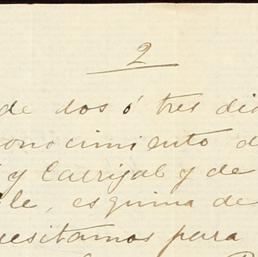 2
de dos ó tres día
onocimiento d
y Carrizal y de
le, esquina de
uesitamos para